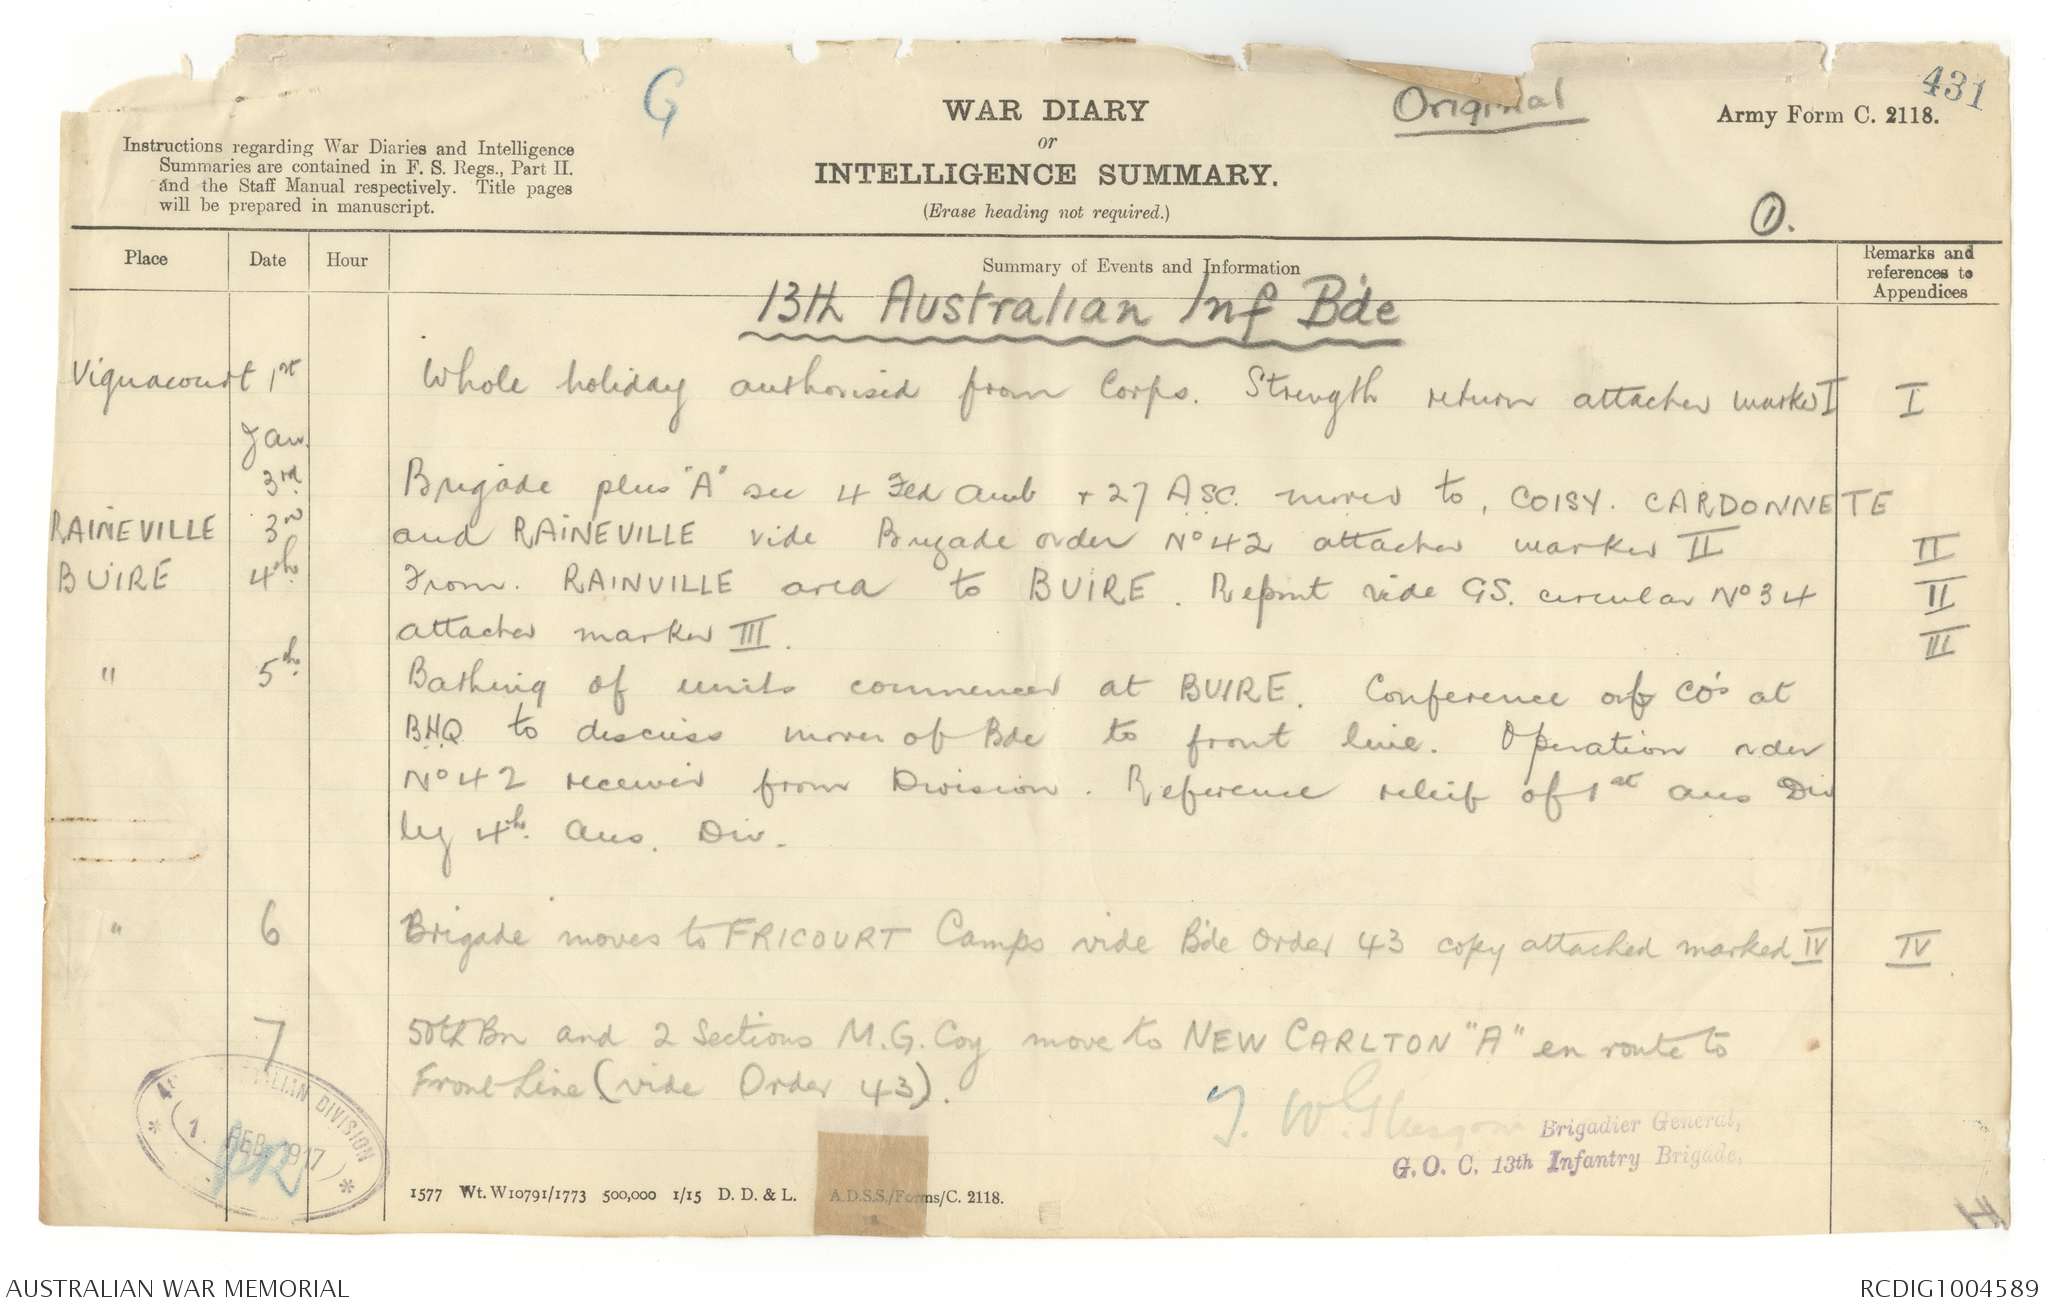 G
Original
431
WAR DIARY
or
INTELLIGENCE SUMMARY.
(Erase heading not required.)
Army Form C. 2118.
Instructions regarding War Diaries and Intelligence
Summaries are contained in F. S. Regs., Part II.
and the Staff Manual respectively. Title pages
will be prepared in manuscript.
1.
Place Date Hour Summary of Events and Information Remarks and references to Appendices
13th Australian Inf Bde
Vignacourt 1st Whole holiday authorised from Corps. Strength return attached marked I I
Jan.
3rd Brigade plus "A" sec 4 Fld Amb + 27 ASC. moved to, COISY. CARDONNETE
RAINEVILLE 3rd and RAINEVILLE vide Brigade order No 42 attached marked II II
BUIRE 4th From. RAINVILLE area to BUIRE. Report vide GS. circular No 34 II
attached marked III. III
" 5th Bathing of units commenced at BUIRE. Conference of CO's at
BHQ to discuss moves of Bde to front line. Operation order
No 42 received from Division. Reference relief of 1st Aus Div
by 4th. Aus. Div.
" 6 Brigade moves to FRICOURT Camps vide Bde Order 43 copy attached marked IV IV
7 50th Bn and 2 Sections M.G. Coy move to NEW CARLTON "A" en route to
Front Line (vide Order 43).
T. W. Glasgow Brigadier General,
G. O. C. 13th Infantry Brigade.
AUSTRALIAN DIVISION
1. FEB 1917
1577 Wt. W10791/1773 500,000 1/15 D. D. & L. A.D.S.S./Forms/C. 2118.
AUSTRALIAN WAR MEMORIAL RCDIG1004589